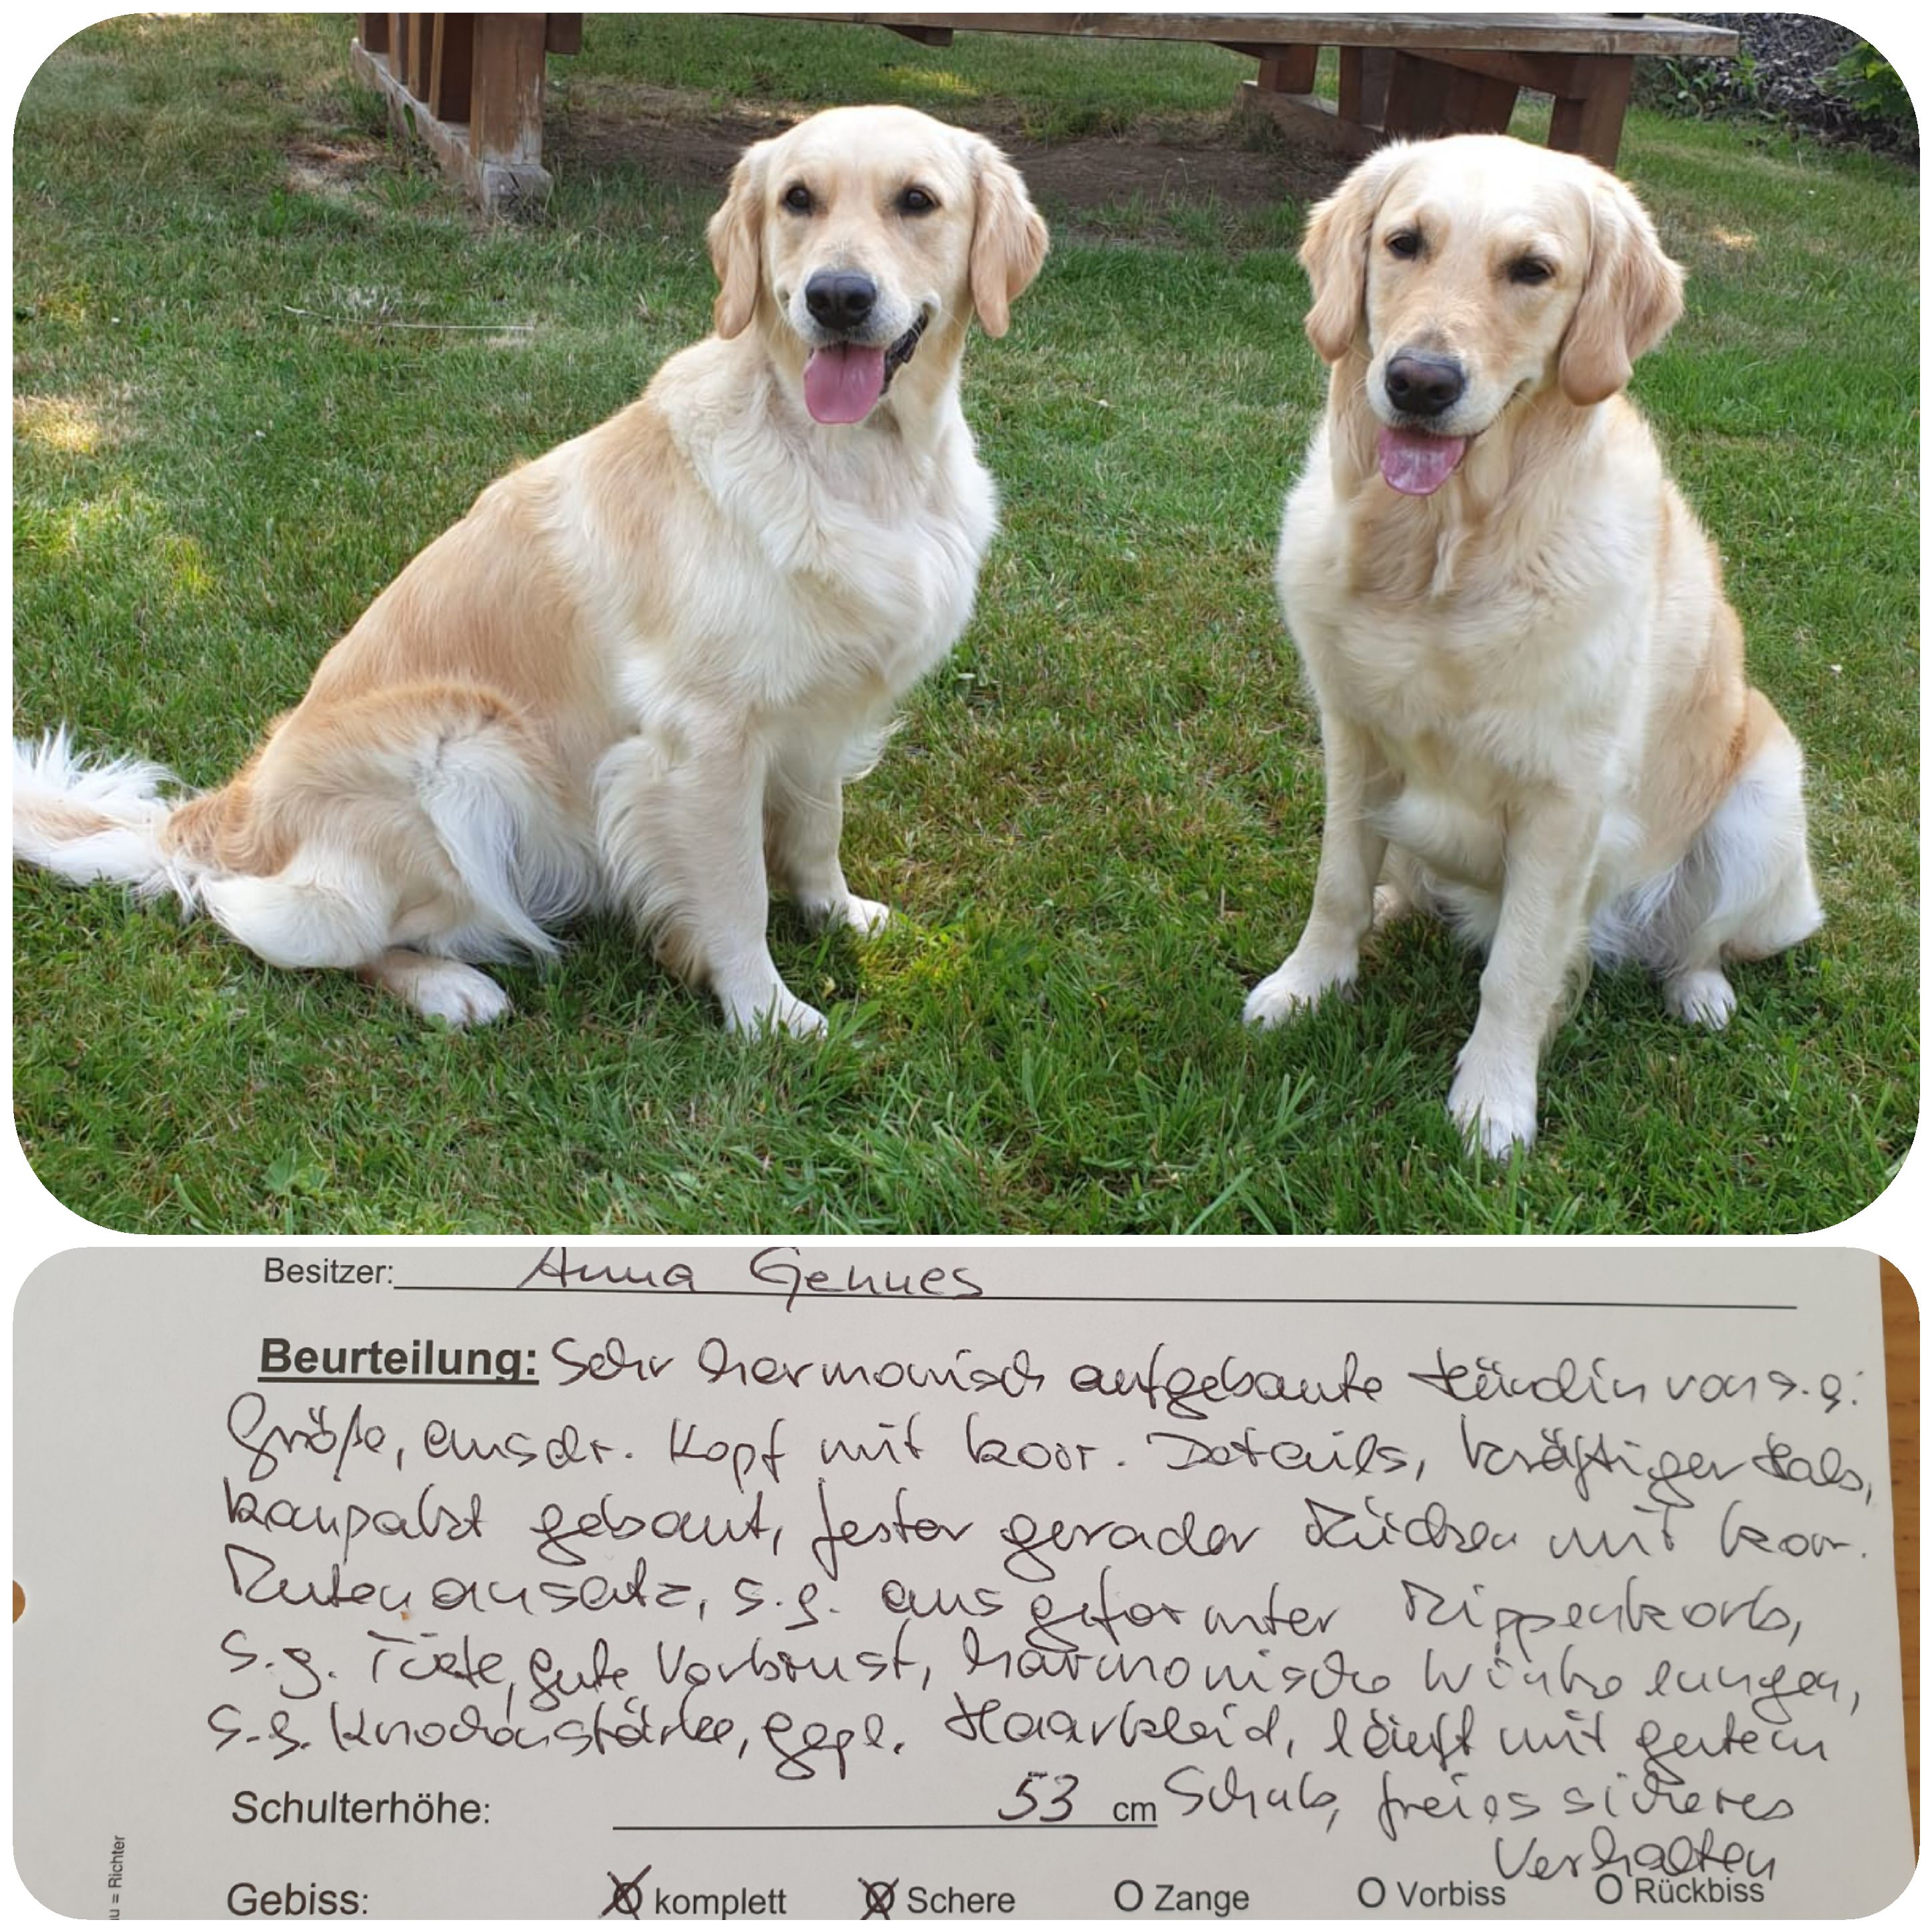 Besitzer: Anna Gennes
Beurteilung: Sehr harmonisch aufgebaute Hündin von s.g.
Größe, ausdr. Kopf mit korr. Details, kräftiger Hals,
kompakt gebaut, fester gerader Rücken mit korr.
Rutenansatz, s.g. ausgeformter Rippenkorb,
s.g. Tiefe, gute Vorbrust, harmonische Winkelungen,
s.g. Knochenstärke, gepfl. Haarkleid, läuft mit gutem
Schulterhöhe: 53 cm Schub, freies sicheres
Verhalten
Gebiss: komplett Schere Zange Vorbiss Rückbiss
u = Richter